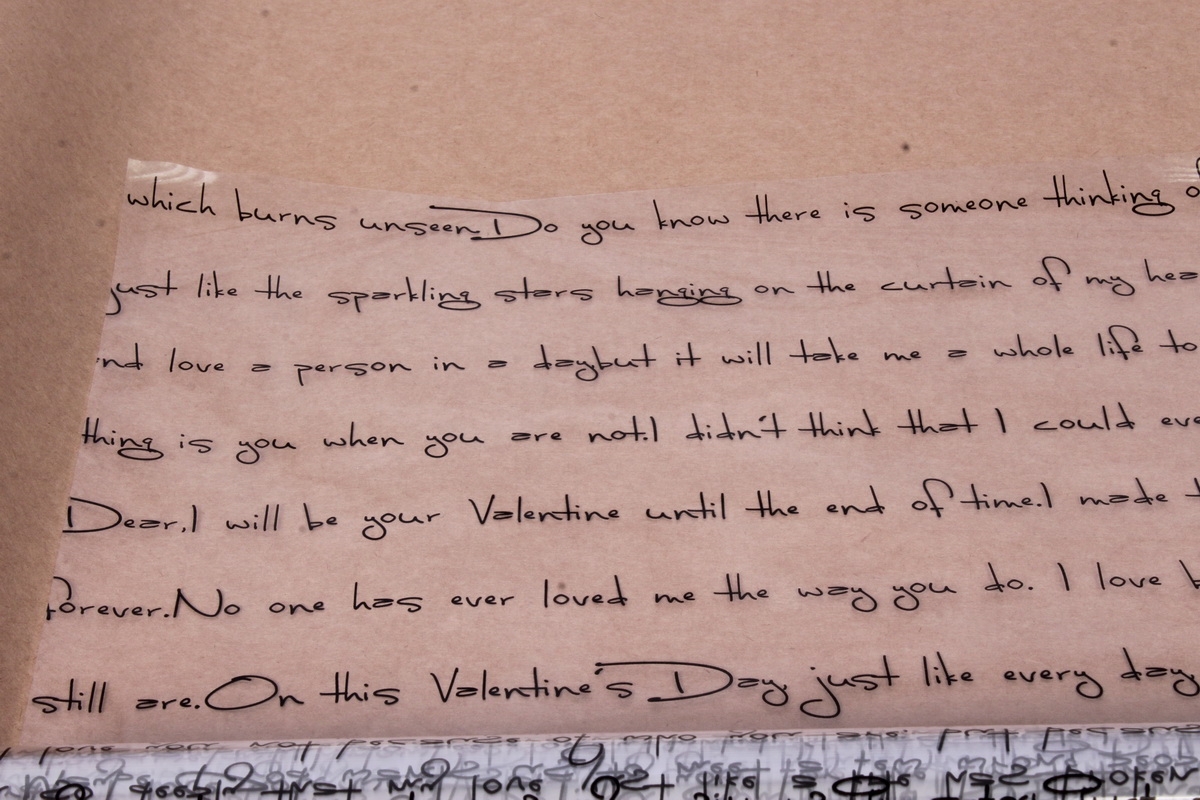 which burns unseen.Do you know there is someone thinking
just like the sparkling stars hanging on the curtain of my
love a person in a daybut it will take me a whole life to
thing is you when you are not.I didn't think that I could
Dear,I will be your Valentine until the end of time.I made
forever.No one has ever loved me the way you do. I love
still are.On this Valentine's Day, just like every day